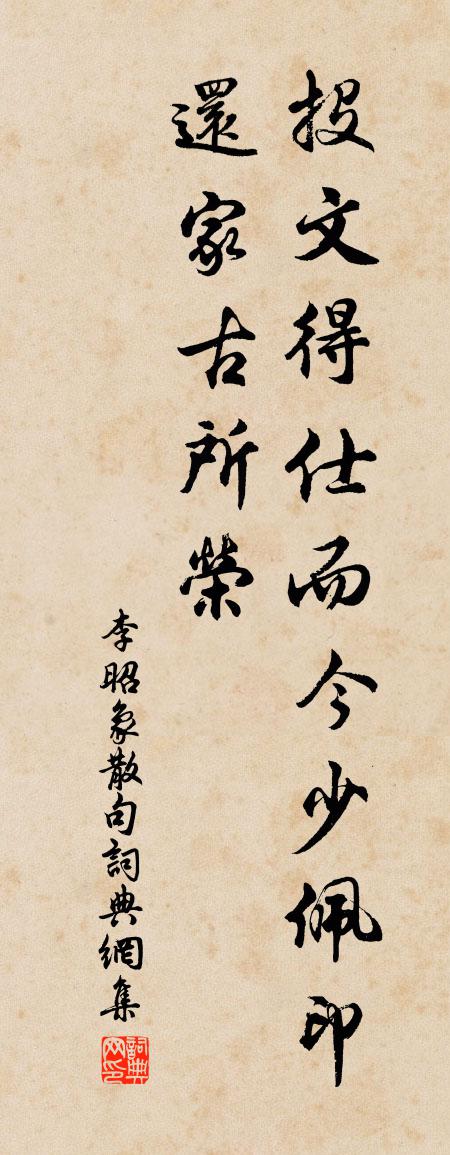 投文得仕而今少佩印
還家古所榮
李昭象散句詞典網集
詞典网印